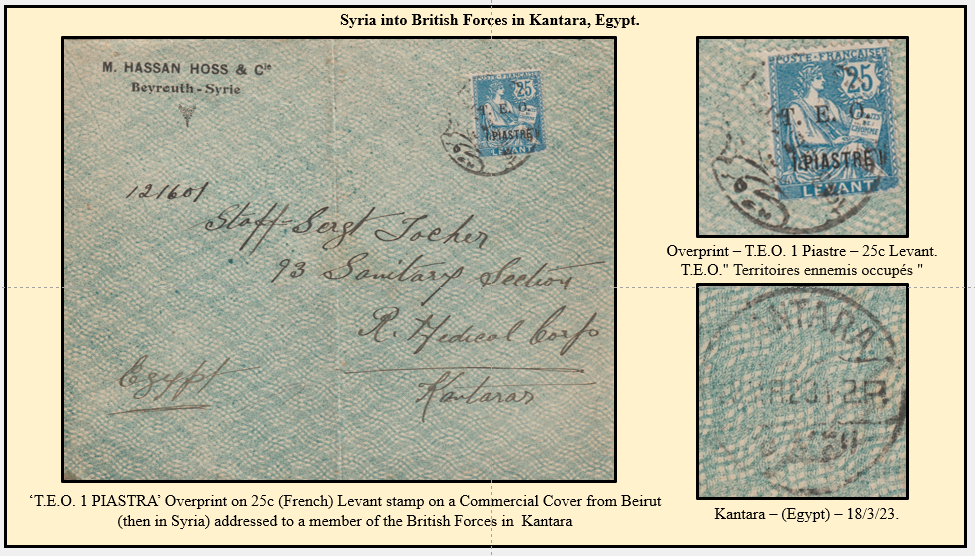 Syria into British Forces in Kantara, Egypt.
M. HASSAN HOSS & Cie
Beyrouth - Syrie
121601
Staff-Sergt Tocher
93 Sanitary Section
R. Medical Corps
Kantara
Egypt
POSTE FRANÇAISE
25
T. E. O.
1 PIASTRE
LEVANT
POSTE FRANÇAISE
25
T. E. O.
1 PIASTRE
LEVANT
Overprint – T.E.O. 1 Piastre – 25c Levant.
T.E.O." Territoires ennemis occupés "
NTARA
‘T.E.O. 1 PIASTRA’ Overprint on 25c (French) Levant stamp on a Commercial Cover from Beirut
(then in Syria) addressed to a member of the British Forces in Kantara
Kantara – (Egypt) – 18/3/23.